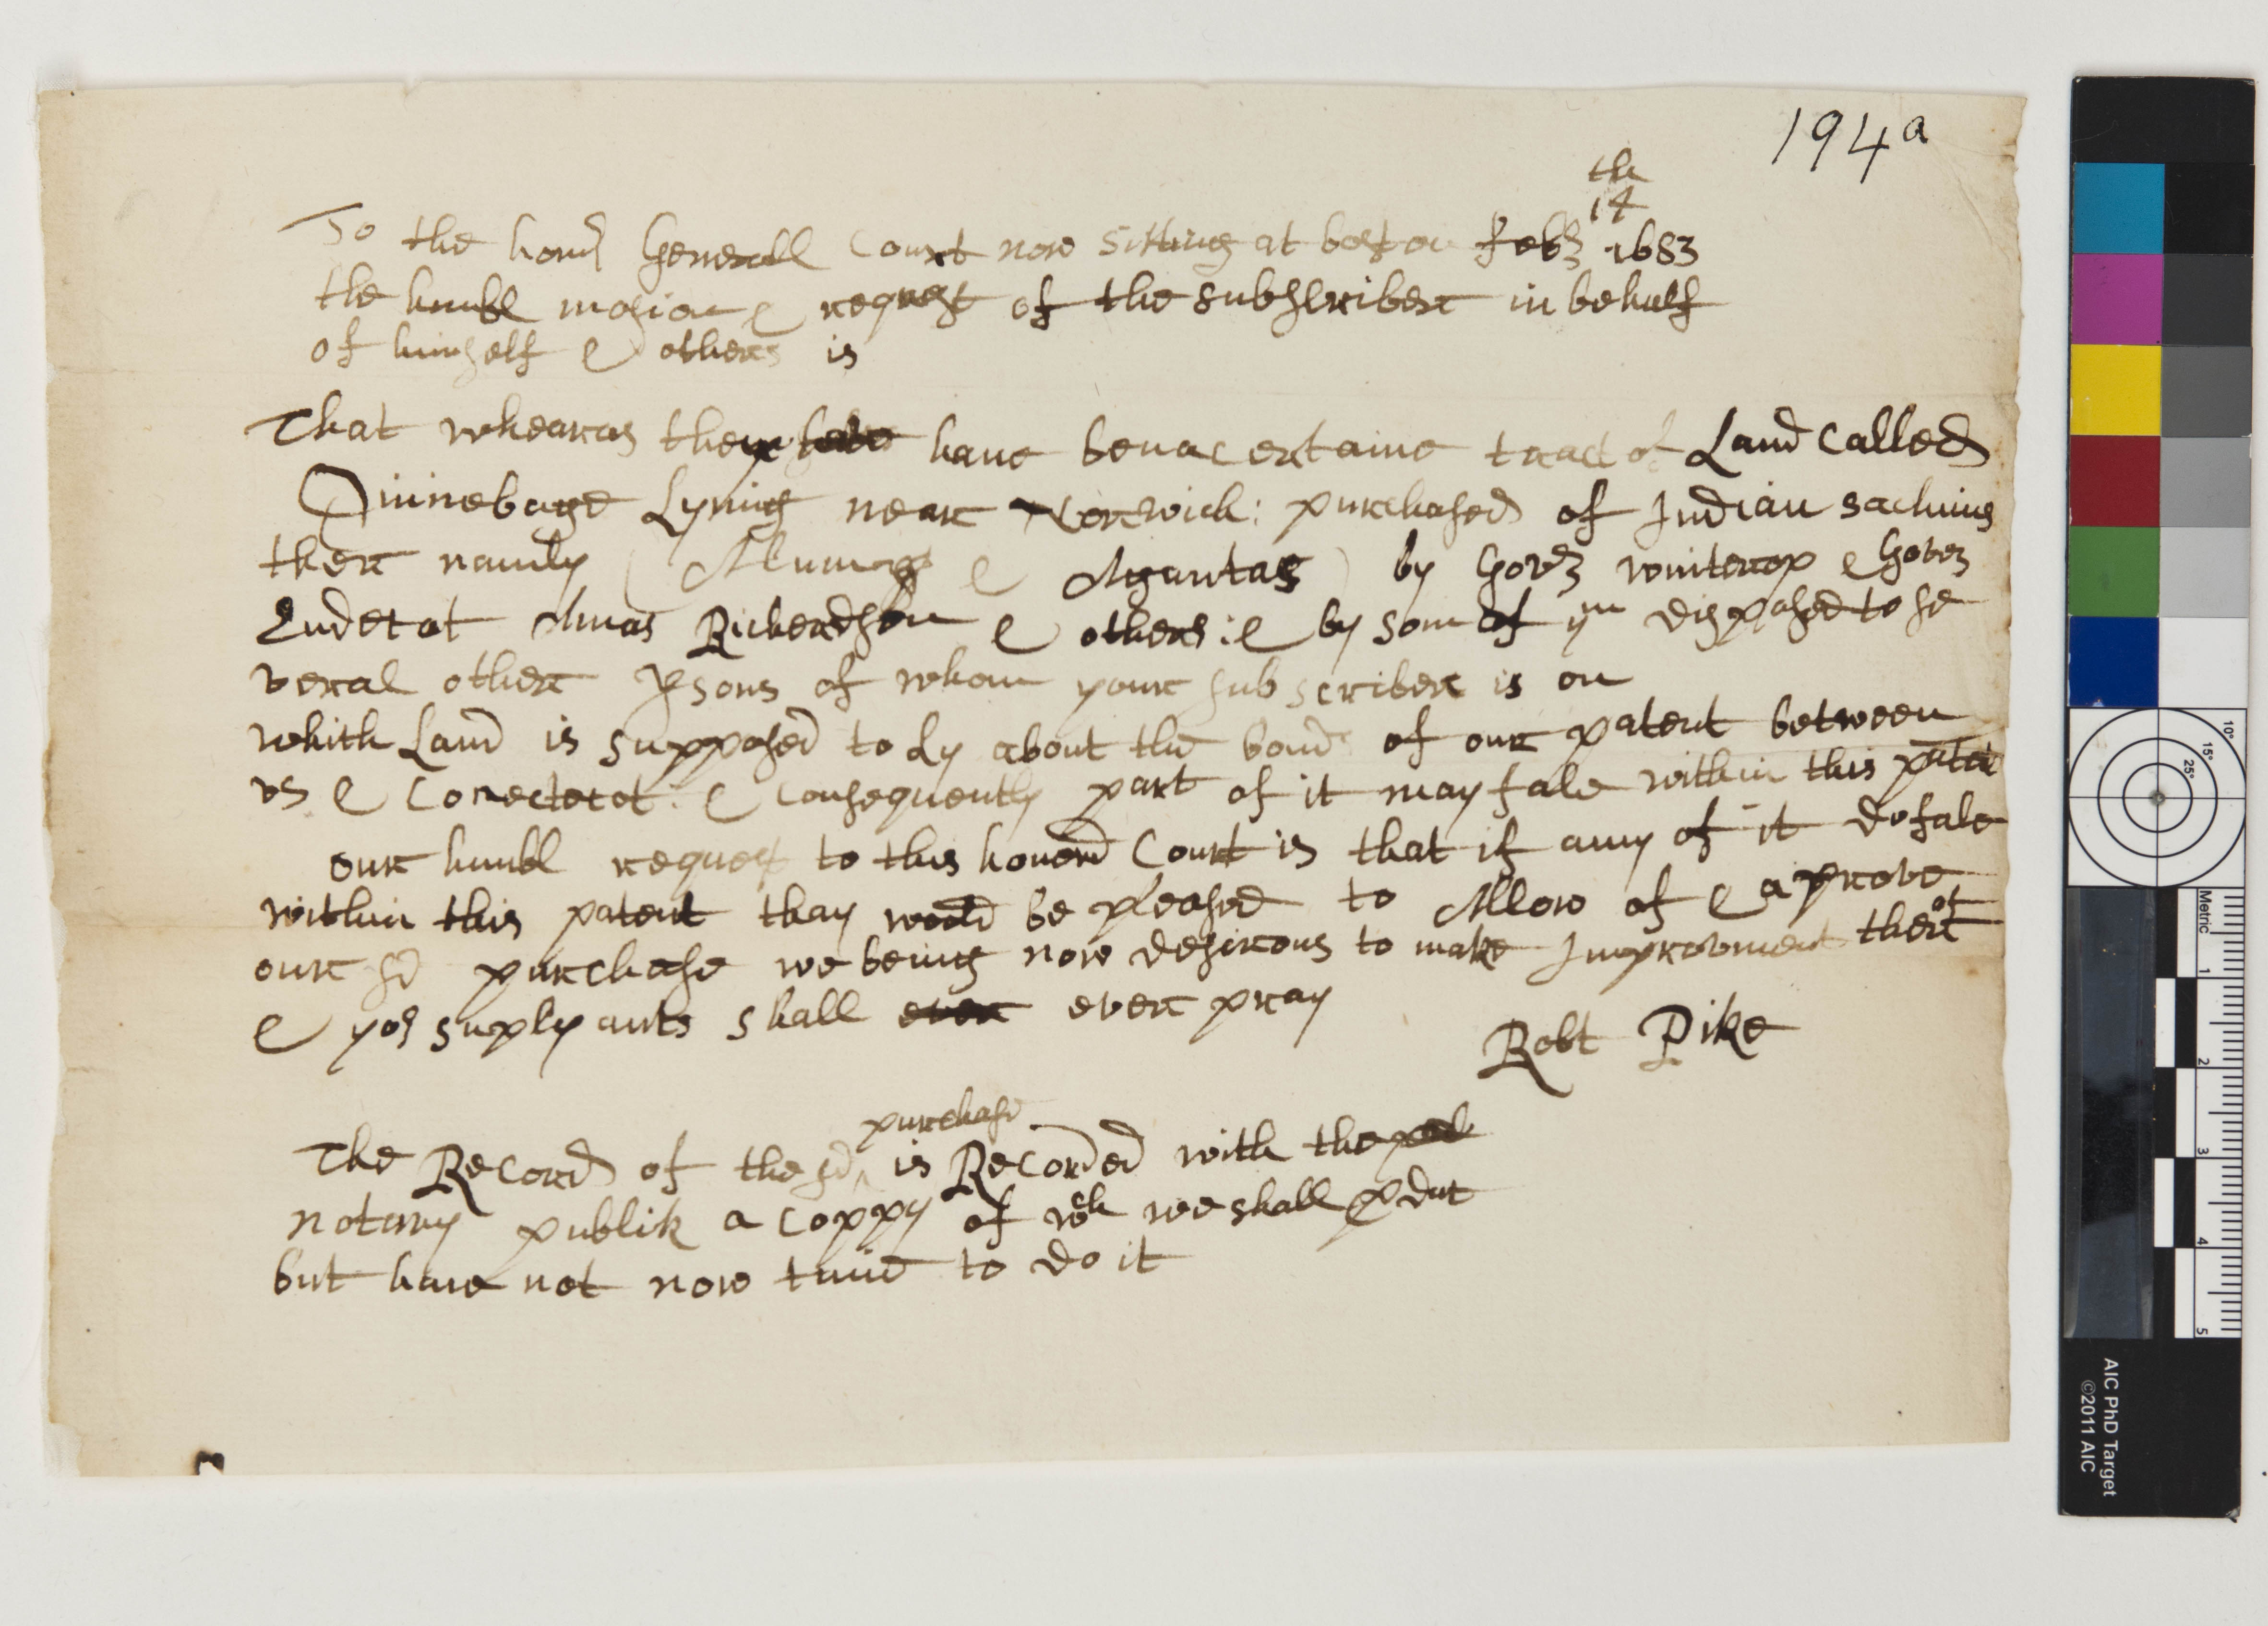 194a
th
14
To the honrd Generall Court now sitting at boston febr 1683
the humbl mosion & request of the subscriber in behalf
of himself & others is
That whearas ther have ben a certaine tract of Land called
Quinebage Lyning near Norwich: purchased of Indian sachims
ther namly (Allums & Aguntas) by Govr winterop & Govr
Endecot Amas Richerdson & others: & by som of ym disposed to se
veral other psons of whom your subscriber is on
which Land is supposed to Ly about the bounds of our patent between
vs & Conectecot: & consequently part of it may fale within this patent
our humbl request to this honerd Court is that if any of it do fale
within this patent thay would be pleased to Allow of & aprove
our sd purchase we being now desirous to make Improvment therof
& yor suplyants shall ever ever pray
Robt Pike
purchase
The Record of the sd is Recorded with the
notary publik a coppy of wch we shall pdut
but have not now time to do it
Metric
1 2 3 4 5
10° 15° 25°
AIC PhD Target
©2011 AIC